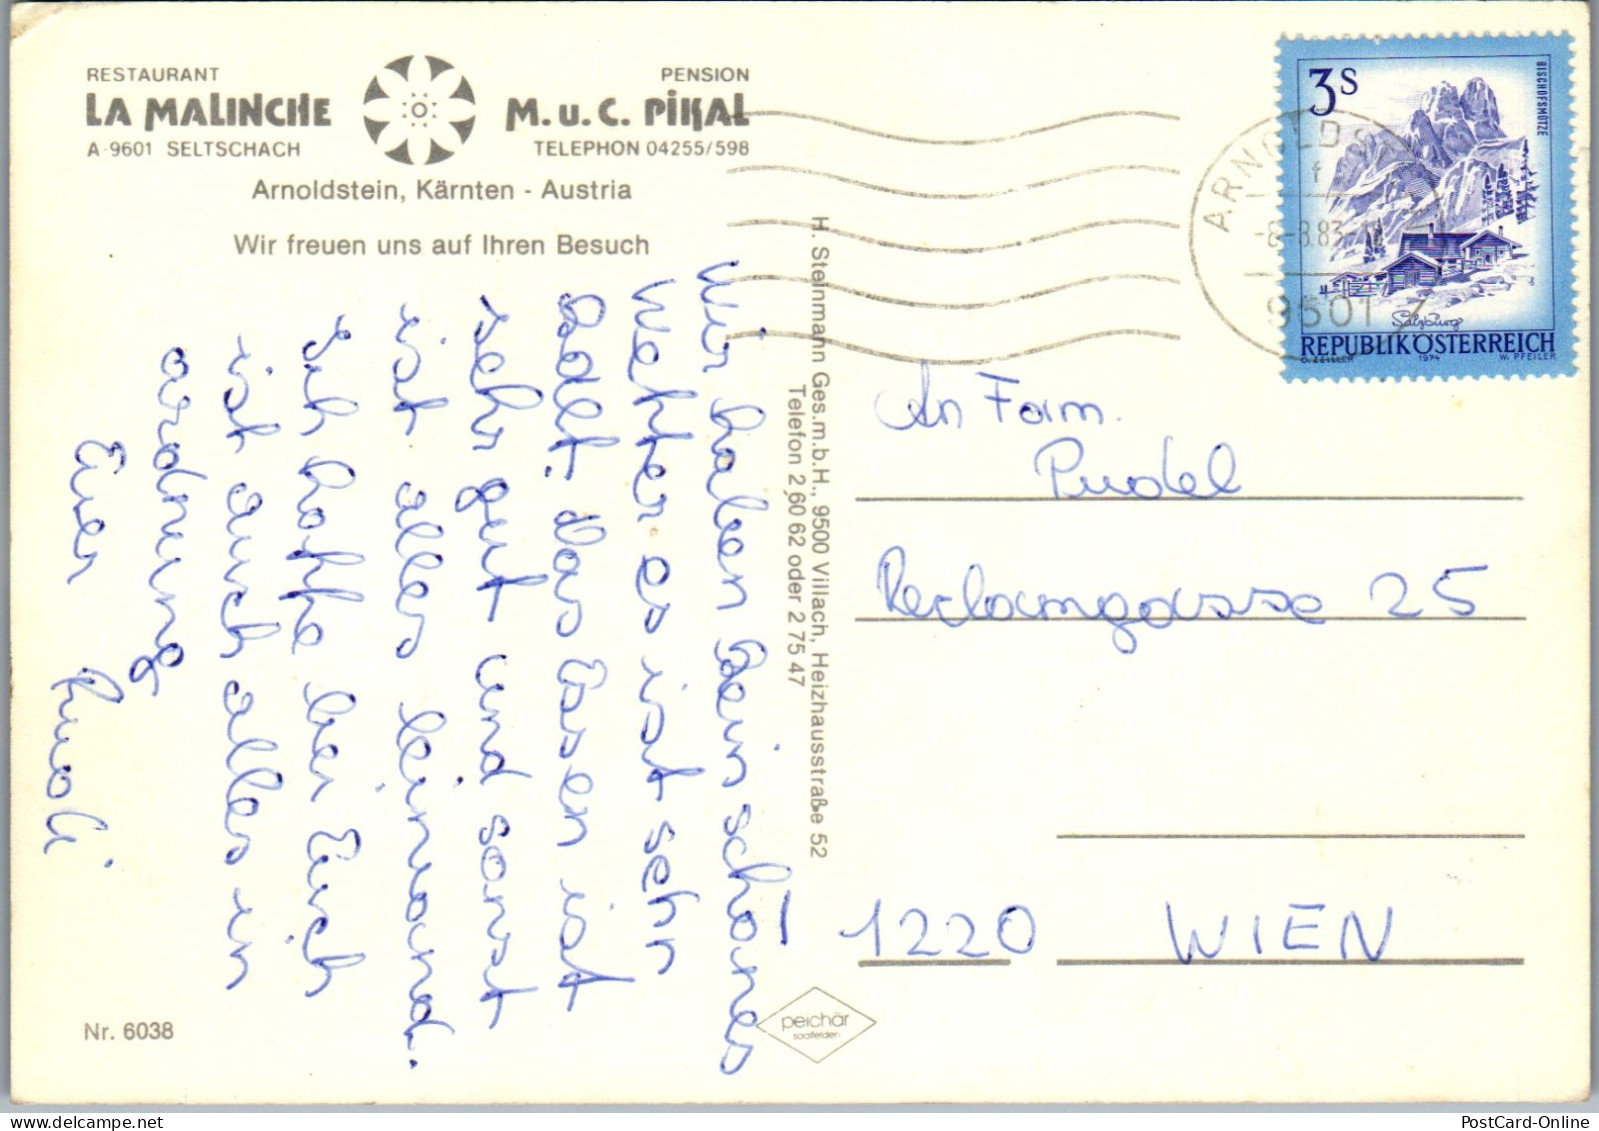 RESTAURANT
LA MALINCHE
A-9601 SELTSCHACH
PENSION
M. u. C. PIKAL
TELEPHON 04255/598
Arnoldstein, Kärnten - Austria
Wir freuen uns auf Ihren Besuch
Wir haben kein schönes
Wetter es ist sehr
kalt. Das Essen ist
sehr gut und sonst
ist alles leinwand.
Ich hoffe bei Euch
ist auch alles in
ordnung
Euer Rudi
Nr. 6038
H. Steinmann Ges.m.b.H., 9500 Villach, Heizhausstraße 52
Telefon 2 60 62 oder 2 75 47
peichär
saalfelden
3S
BISCHOFSMÜTZE
Salzburg
REPUBLIK ÖSTERREICH
O. ZEILLER 1974 W. PFEILER
ARNOLDS
f
-8.-8.83-
9601
An Fam.
Pudel
Reclamgasse 25
1220 WIEN
PostCard-Online